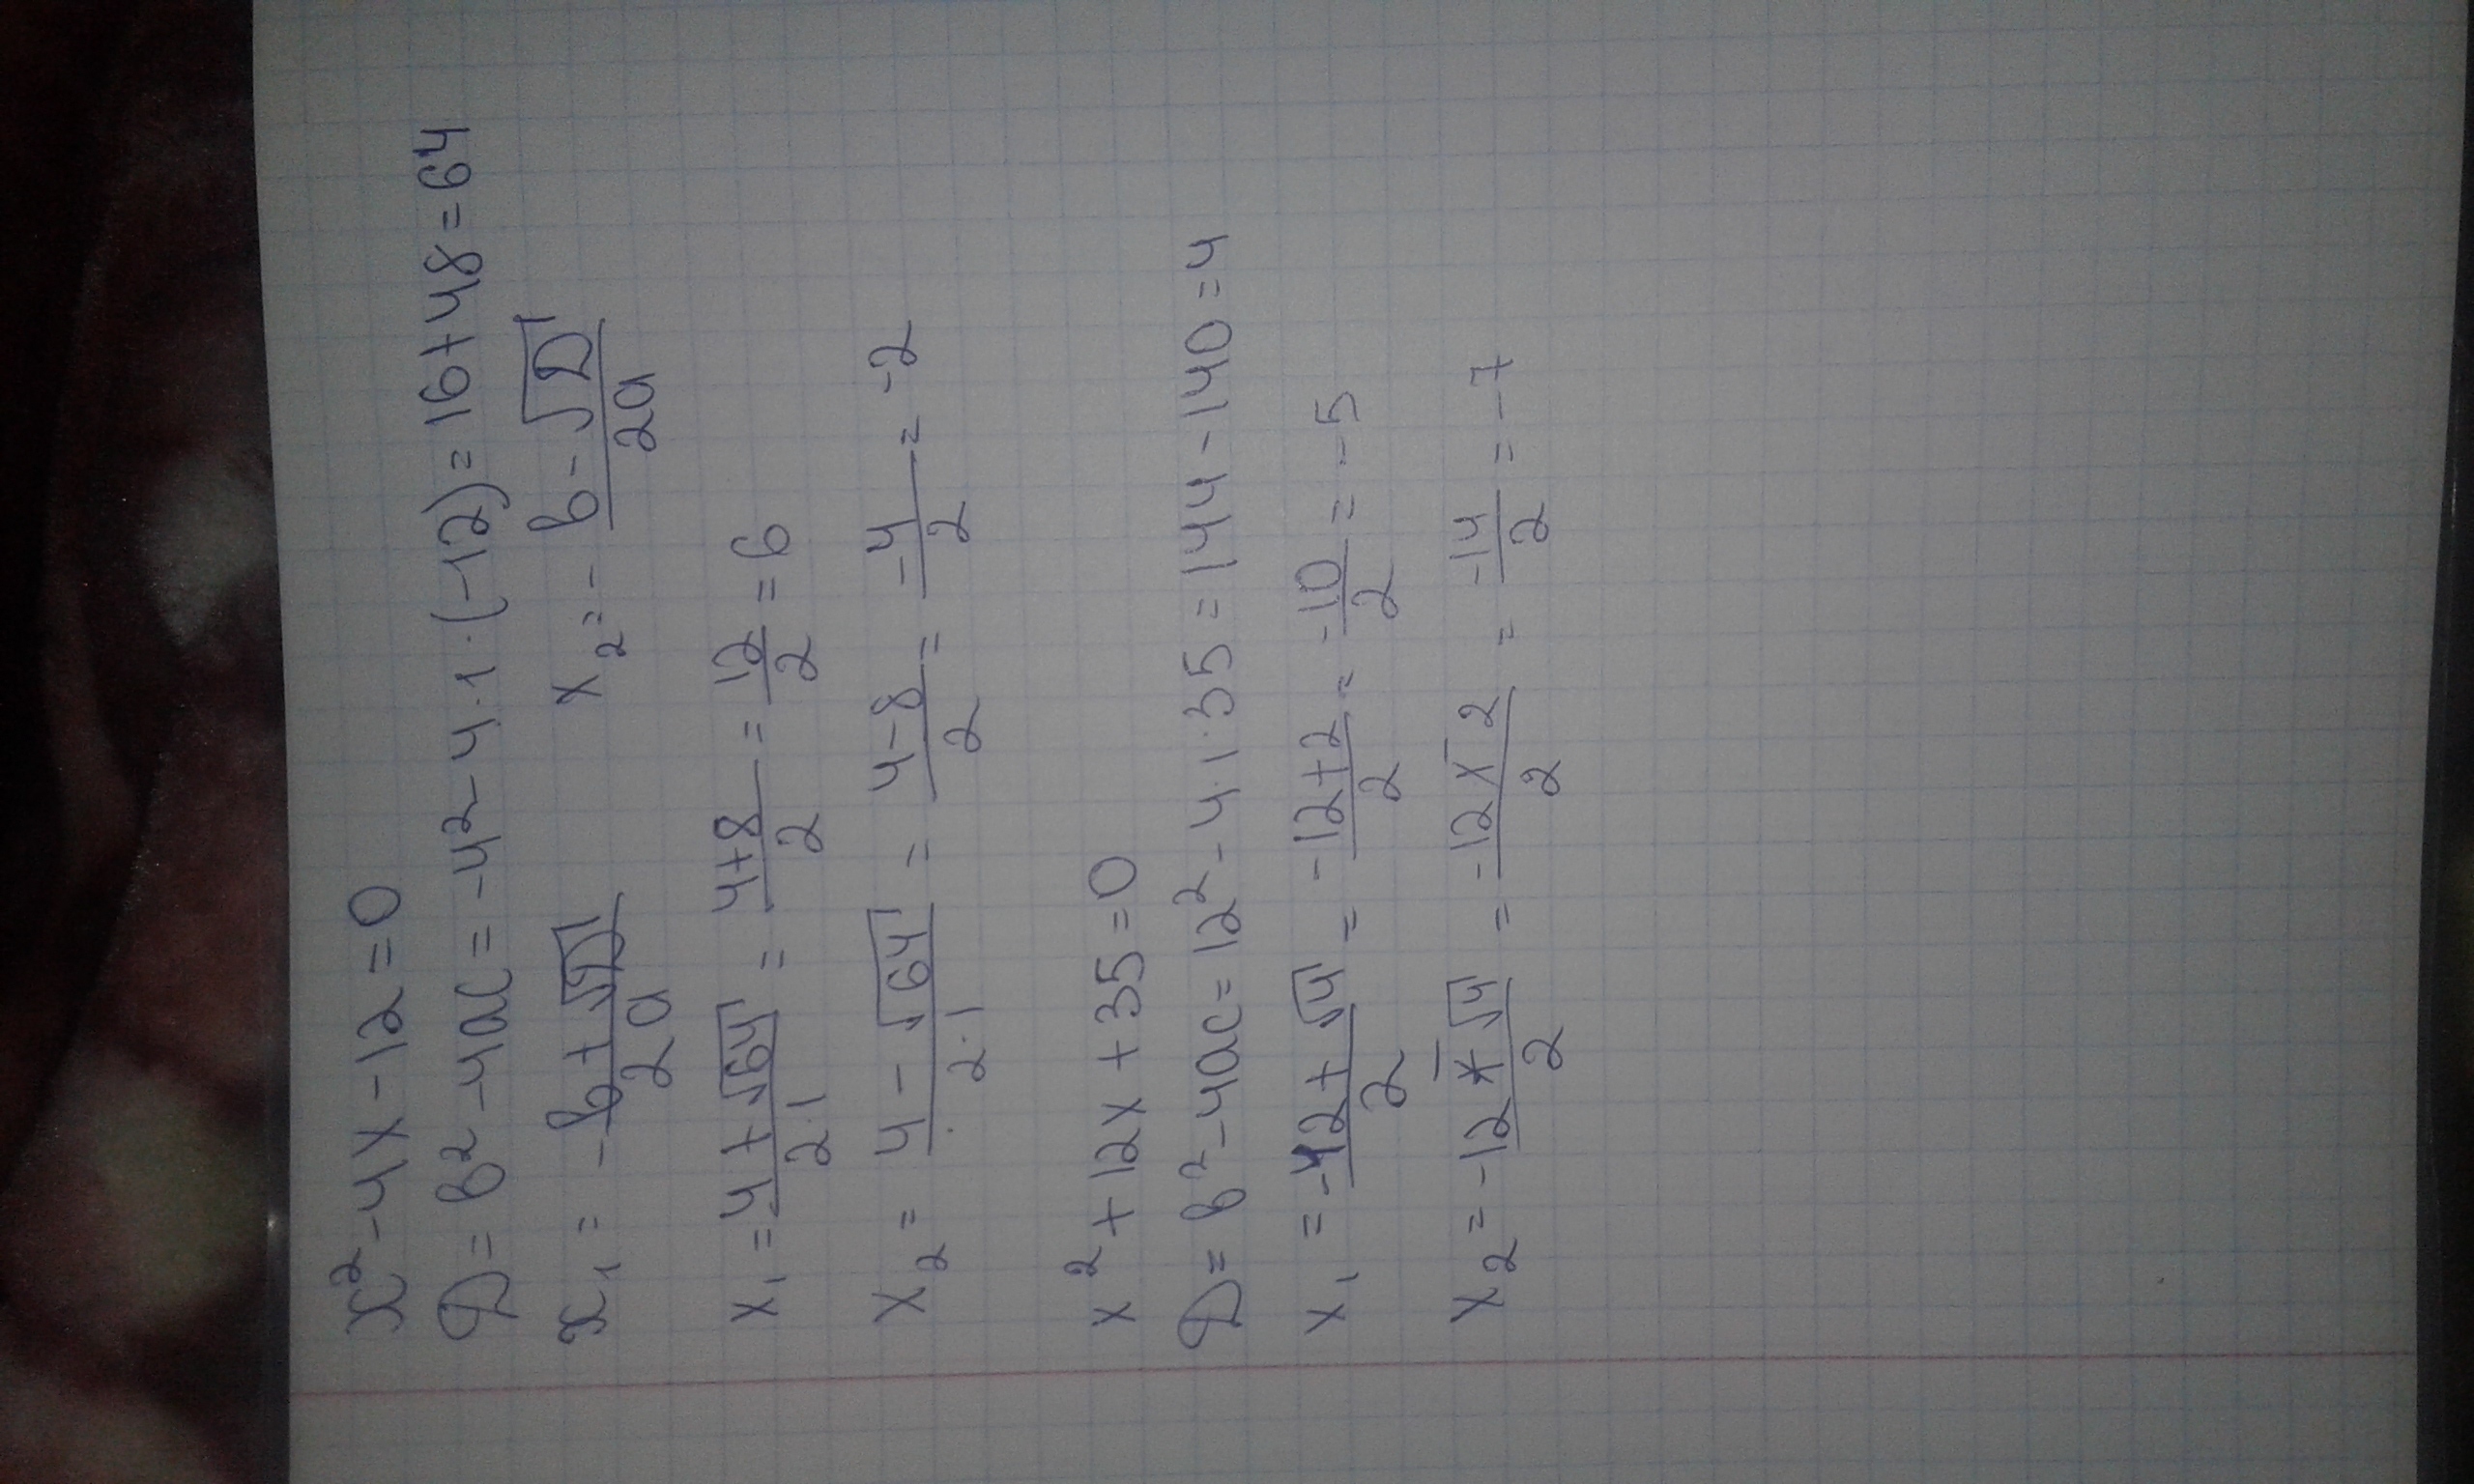 x² - 4x - 12 = 0
D = b² - 4ac = -4² - 4 · 1 · (-12) = 16 + 48 = 64
x₁ = -(b + √D)/2a x₂ = -(b - √D)/2a
x₁ = (4 + √64)/(2 · 1) = (4 + 8)/2 = 12/2 = 6
x₂ = (4 - √64)/(2 · 1) = (4 - 8)/2 = -4/2 = -2
x² + 12x + 35 = 0
D = b² - 4ac = 12² - 4 · 1 · 35 = 144 - 140 = 4
x₁ = (-12 + √4)/2 = (-12 + 2)/2 = -10/2 = -5
x₂ = (-12 - √4)/2 = (-12 - 2)/2 = -14/2 = -7